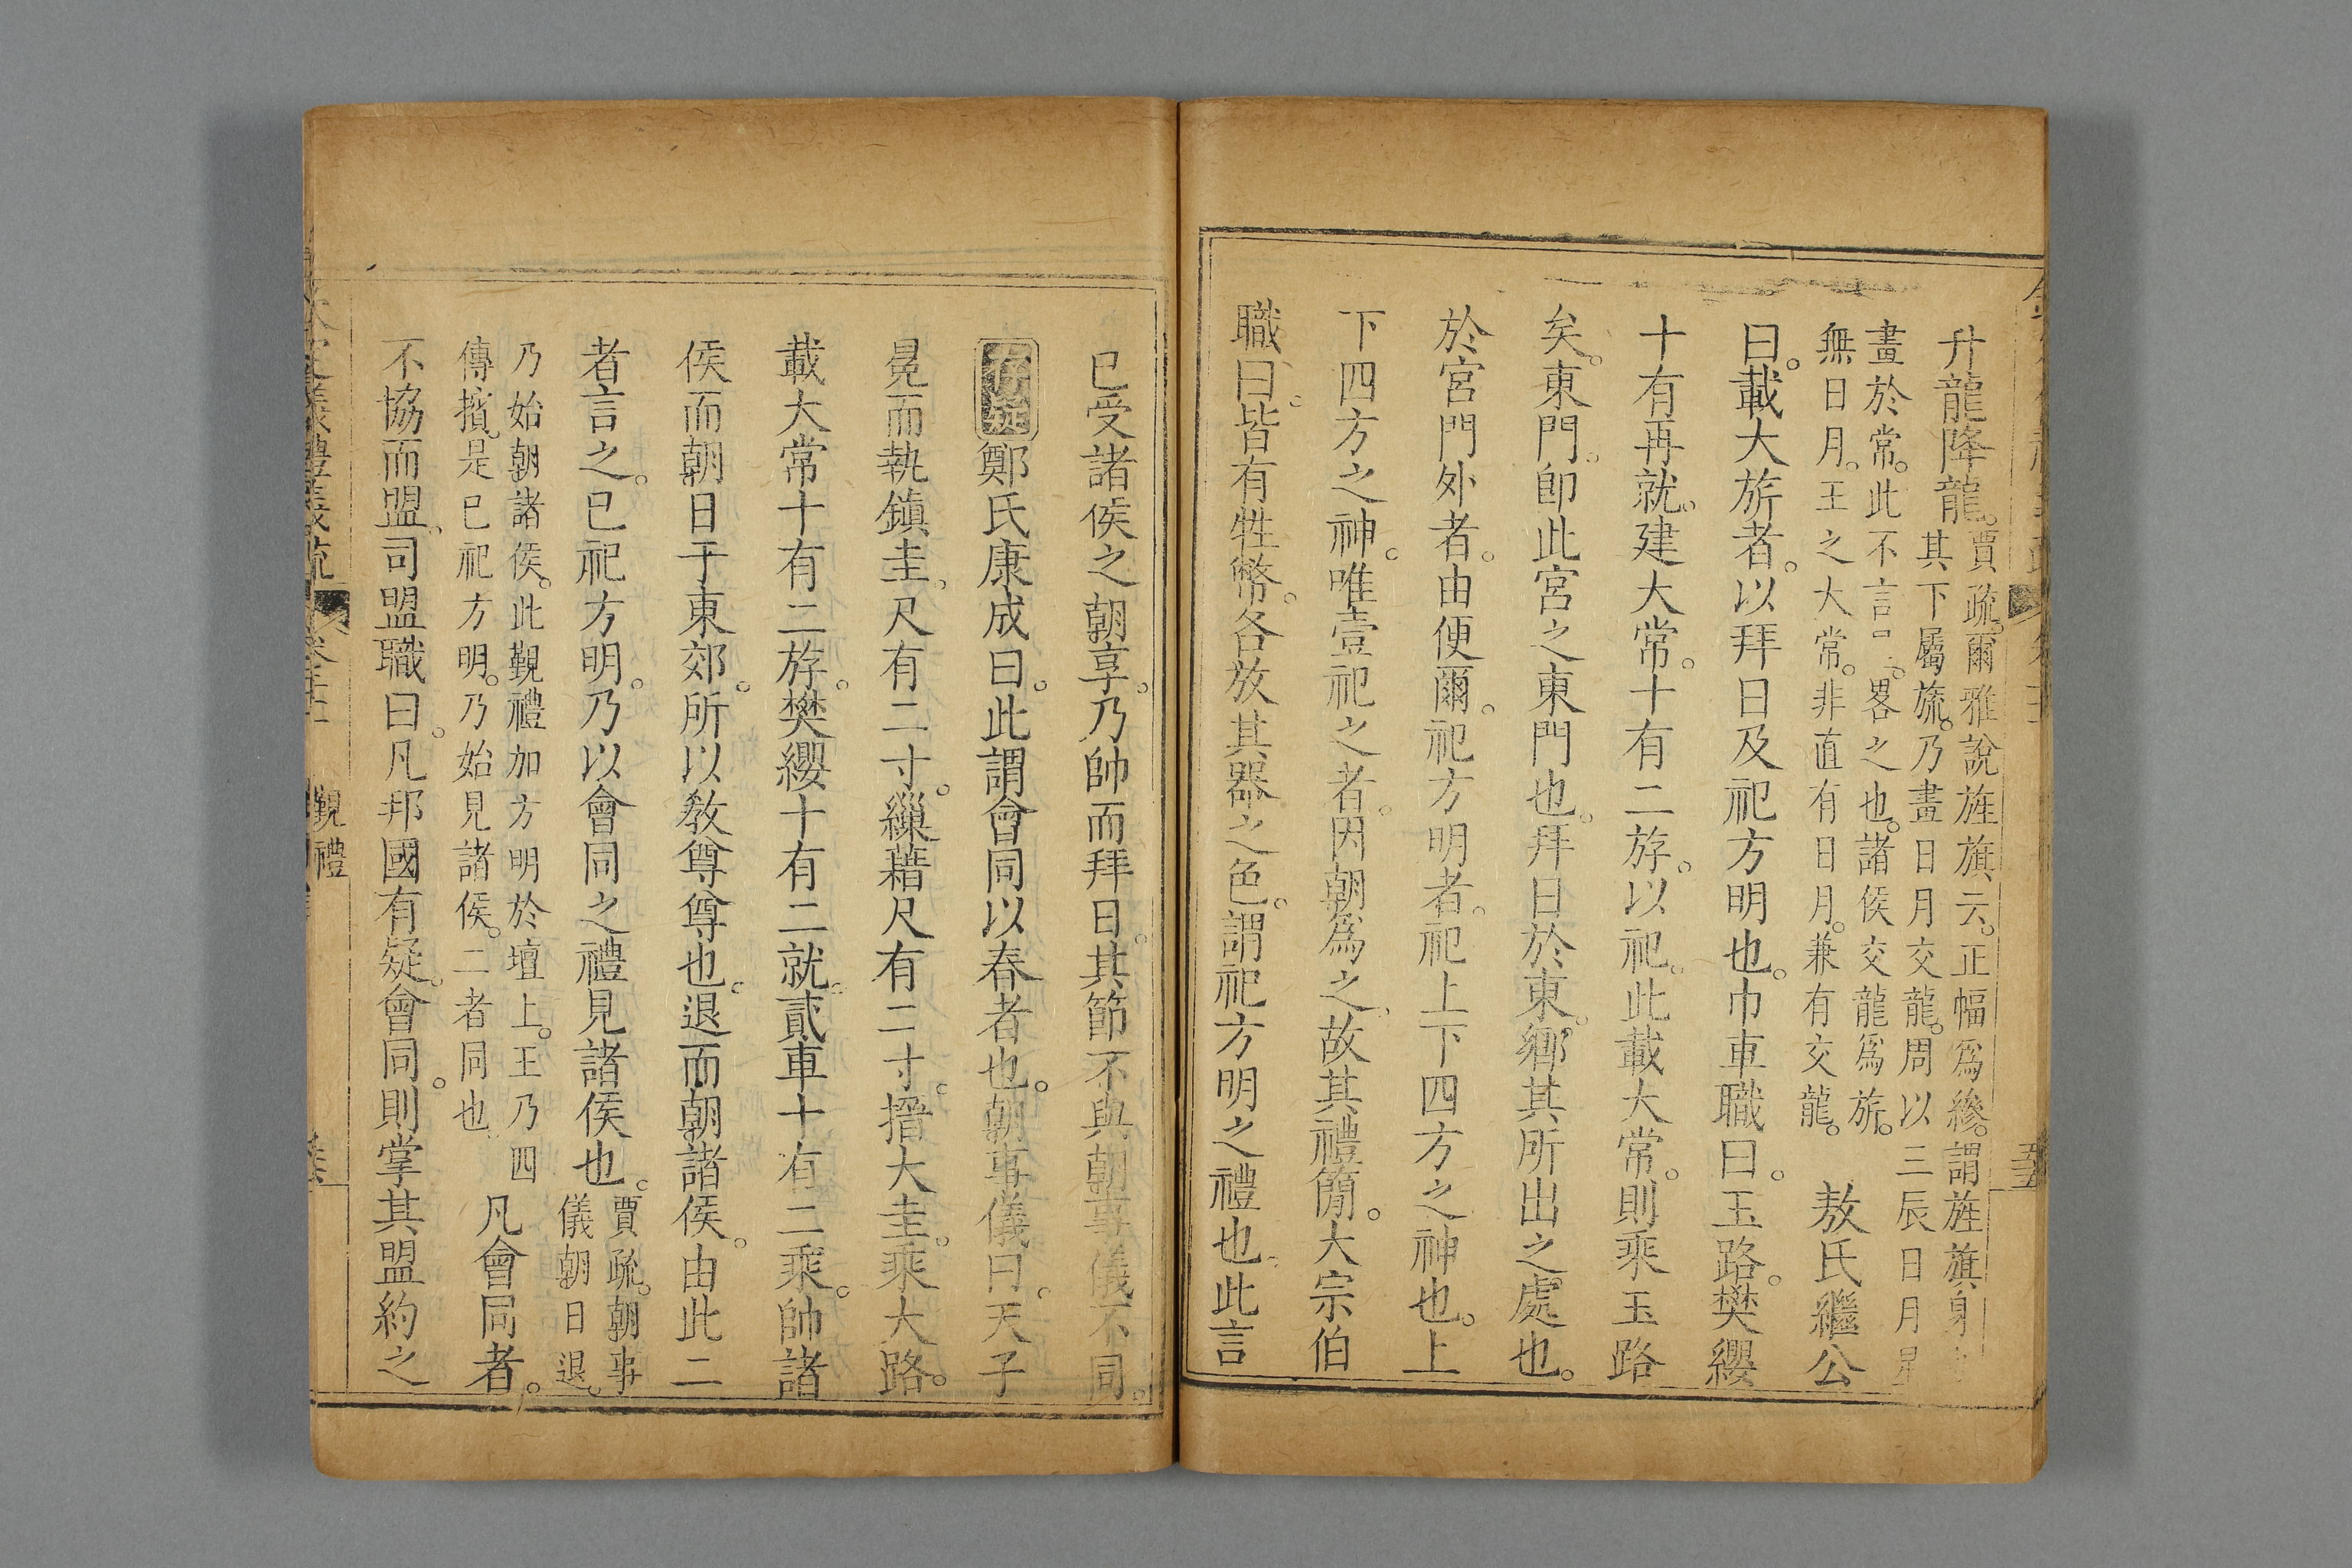 升龍降龍。賈疏。爾雅說旌旗云。正幅爲縿。謂旌旗身
其下屬旒。乃畫日月交龍。周以三辰日月星
畫於常。此不言 畧之也。諸侯交龍爲旂。
無日月。王之大常。非直有日月。兼有交龍。敖氏繼公
曰。載大旂者。以拜日及祀方明也。巾車職曰。玉路。樊纓
十有再就。建大常。十有二斿。以祀。此載大常。則乘玉路
矣。東門。卽此宮之東門也。拜日於東。鄉其所出之處也。
於宮門外者。由便爾。祀方明者。祀上下四方之神也。上
下四方之神。唯壹祀之者。因朝爲之。故其禮簡。大宗伯
職曰。皆有牲幣。各放其器之色。謂祀方明之禮也。此言
已受諸侯之朝享。乃帥而拜日。其節不與朝事儀不同。
存疑鄭氏康成曰。此謂會同以春者也。朝事儀曰。天子
冕而執鎮圭。尺有二寸。繅藉尺有二寸。搢大圭。乘大路。
載大常十有二斿。樊纓十有二就。貳車十有二乘。帥諸
侯而朝日于東郊。所以敎尊尊也。退而朝諸侯。由此二
者言之。已祀方明。乃以會同之禮見諸侯也。賈疏。朝事
儀朝日退。
乃始朝諸侯。此覲禮加方明於壇上。王乃四
傳擯。是已祀方明。乃始見諸侯。二者同也。凡會同者。
不協而盟。司盟職曰。凡邦國有疑。會同。則掌其盟約之
覲禮